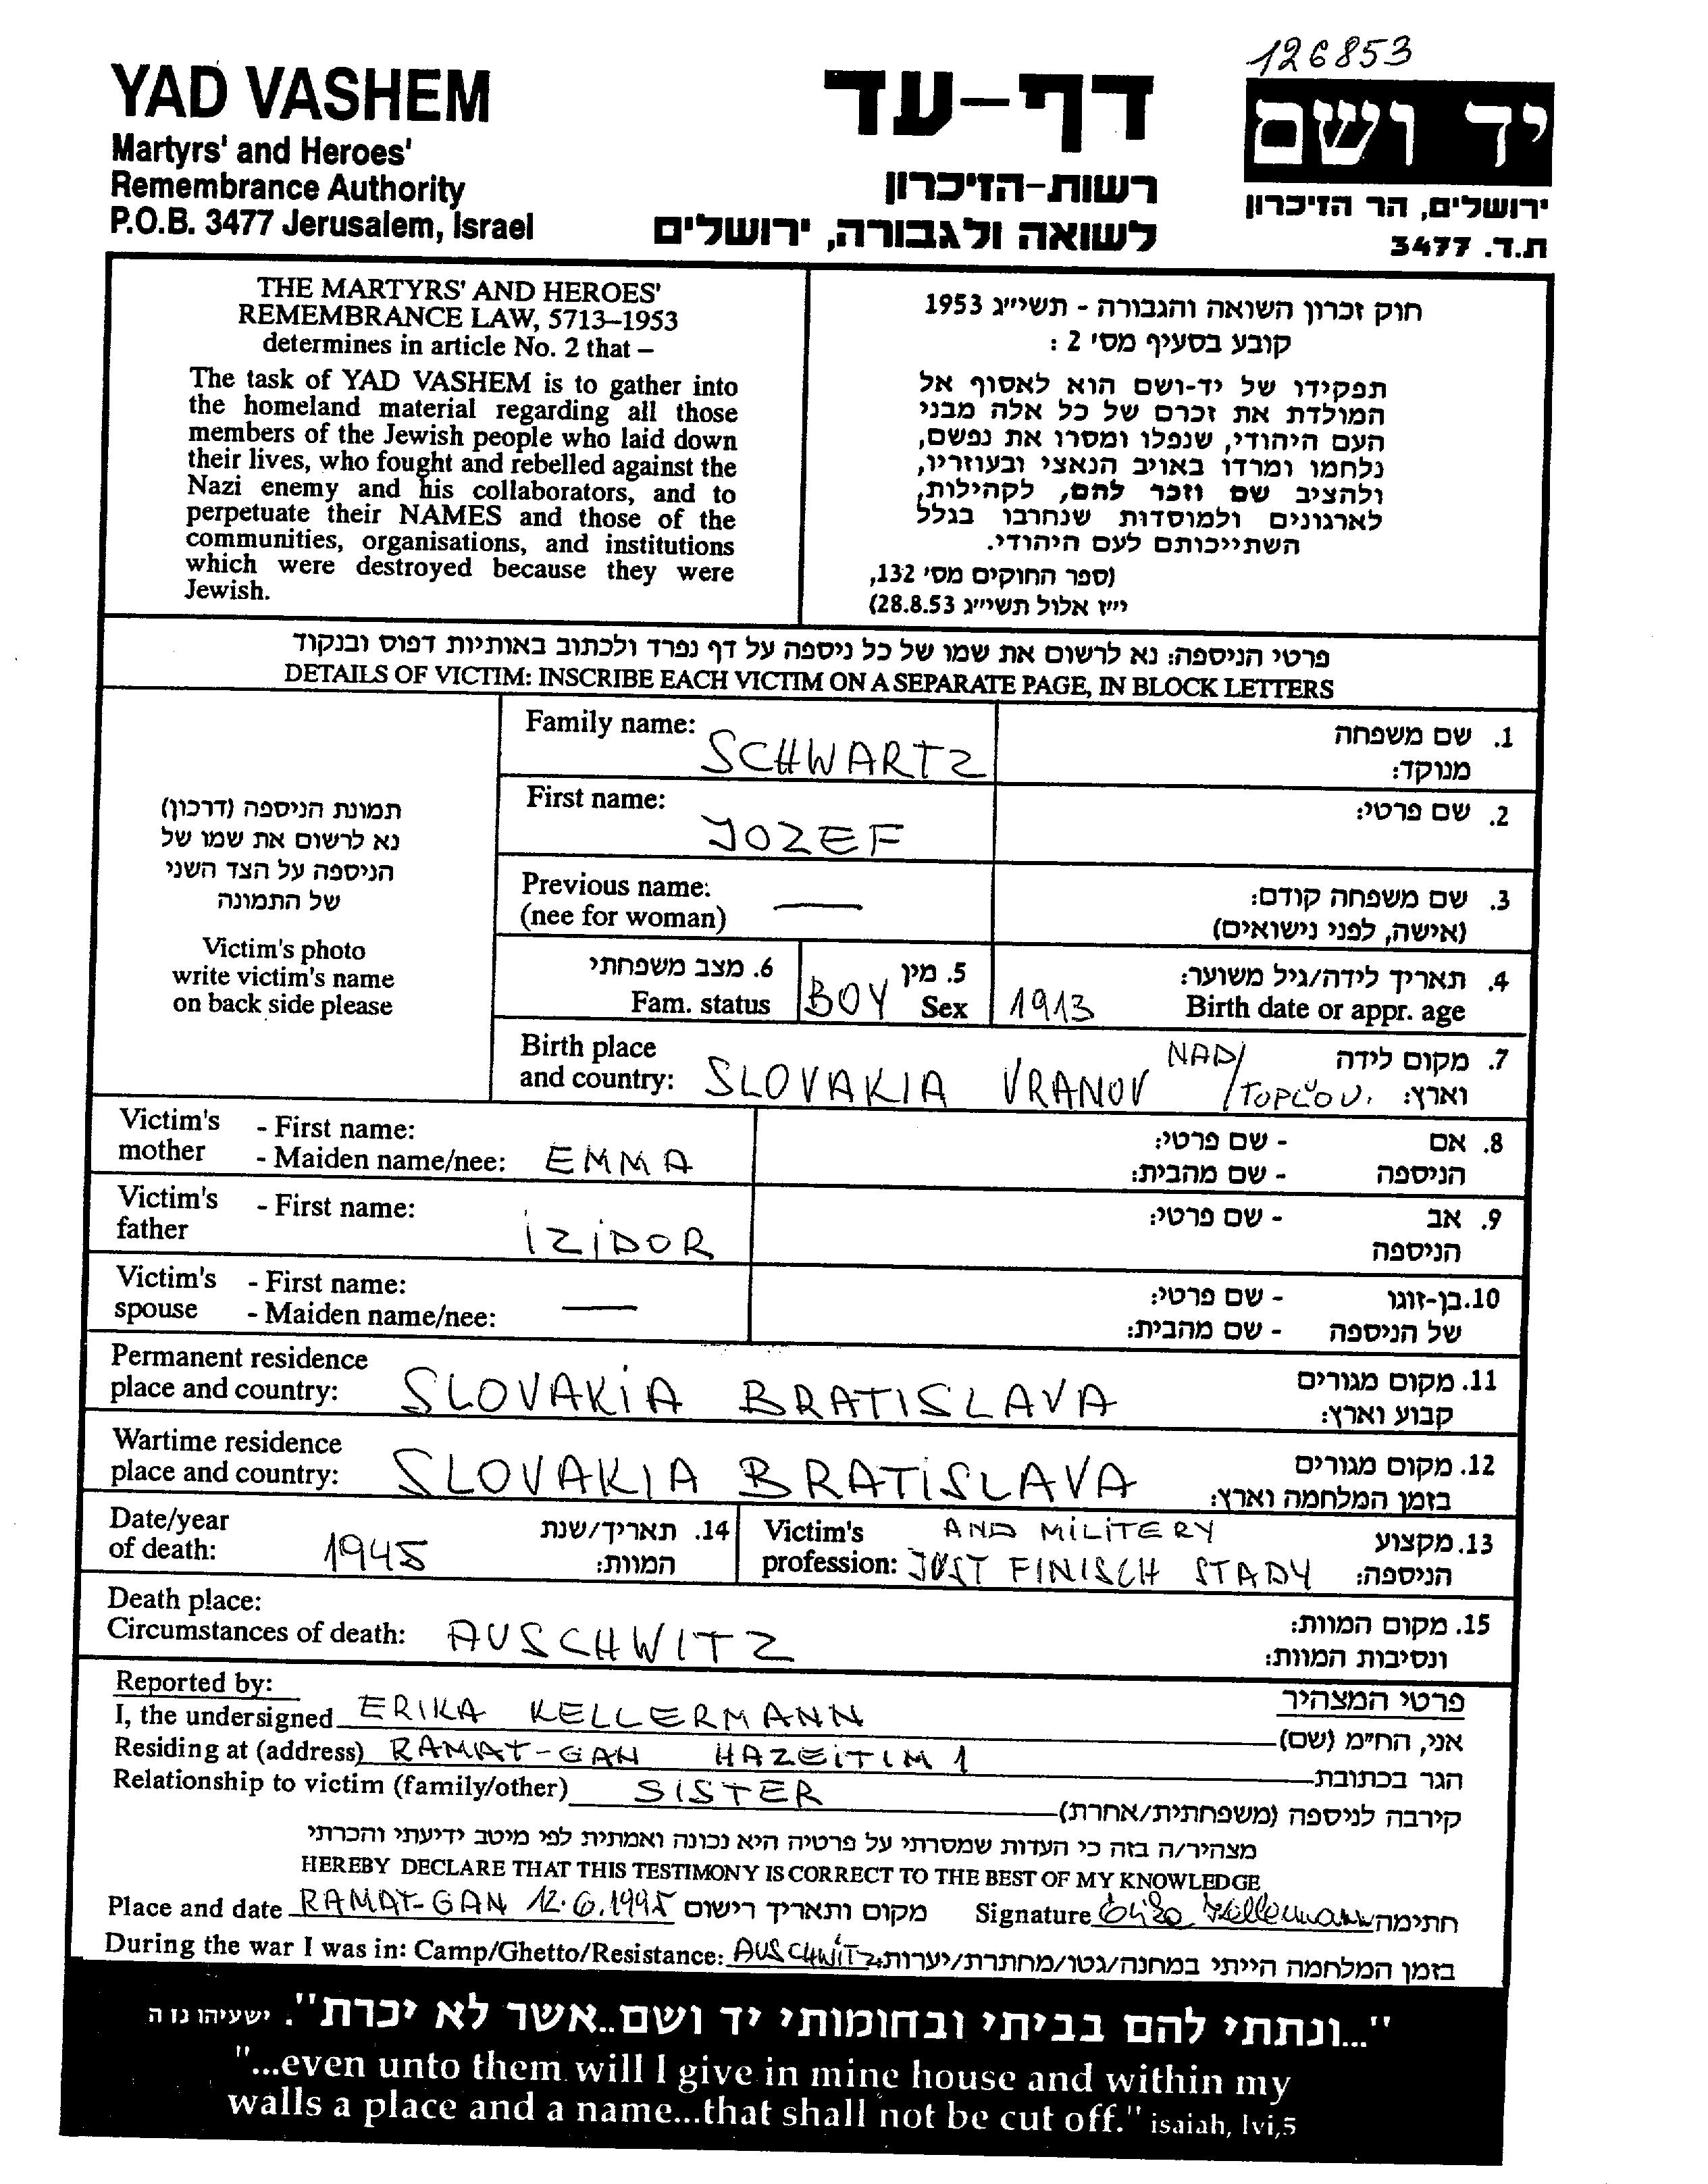 126853
YAD VASHEM
Martyrs' and Heroes'
Remembrance Authority
P.O.B. 3477 Jerusalem, Israel
דף-עד
רשות-הזיכרון
לשואה ולגבורה, ירושלים
יד ושם
ירושלים, הר הזיכרון
ת.ד. 3477
THE MARTYRS' AND HEROES'
REMEMBRANCE LAW, 5713–1953
determines in article No. 2 that –
The task of YAD VASHEM is to gather into
the homeland material regarding all those
members of the Jewish people who laid down
their lives, who fought and rebelled against the
Nazi enemy and his collaborators, and to
perpetuate their NAMES and those of the
communities, organisations, and institutions
which were destroyed because they were
Jewish.
חוק זכרון השואה והגבורה - תשי״ג 1953
קובע בסעיף מס׳ 2 :
תפקידו של יד-ושם הוא לאסוף אל
המולדת את זכרם של כל אלה מבני
העם היהודי, שנפלו ומסרו את נפשם,
נלחמו ומרדו באויב הנאצי ובעוזריו,
ולהציב שם וזכר להם, לקהילות,
לארגונים ולמוסדות שנחרבו בגלל
השתייכותם לעם היהודי.
(ספר החוקים מס׳ 132,
י״ז אלול תשי״ג 28.8.53)
פרטי הניספה: נא לרשום את שמו של כל ניספה על דף נפרד ולכתוב באותיות דפוס ובנקוד
DETAILS OF VICTIM: INSCRIBE EACH VICTIM ON A SEPARATE PAGE, IN BLOCK LETTERS
תמונת הניספה (דרכון)
נא לרשום את שמו של
הניספה על הצד השני
של התמונה
Victim's photo
write victim's name
on back side please
Family name: SCHWARTZ
1. שם משפחה
מנוקד:
First name: JOZEF
2. שם פרטי:
Previous name: —
(nee for woman)
3. שם משפחה קודם:
(אישה, לפני נישואים)
6. מצב משפחתי
Fam. status
5. מין
BOY Sex
4. תאריך לידה/גיל משוער:
1913 Birth date or appr. age
Birth place
and country: SLOVAKIA VRANOV NAD/TOPĽOU.
7. מקום לידה
וארץ:
Victim's - First name:
mother - Maiden name/nee: EMMA
8. אם - שם פרטי:
הניספה - שם מהבית:
Victim's - First name:
father IZIDOR
9. אב - שם פרטי:
הניספה
Victim's - First name:
spouse - Maiden name/nee: —
10. בן-זוגו - שם פרטי:
של הניספה - שם מהבית:
Permanent residence
place and country: SLOVAKIA BRATISLAVA
11. מקום מגורים
קבוע וארץ:
Wartime residence
place and country: SLOVAKIA BRATISLAVA
12. מקום מגורים
בזמן המלחמה וארץ:
Date/year
of death: 1945
14. תאריך/שנת
המוות:
Victim's AND MILITERY
profession: JUST FINISCH STADY
13. מקצוע
הניספה:
Death place:
Circumstances of death: AUSCHWITZ
15. מקום המוות:
ונסיבות המוות:
Reported by:
פרטי המצהיר
I, the undersigned ERIKA KELLERMANN אני, הח״מ (שם)
Residing at (address) RAMAT-GAN HAZEITIM 1 הגר בכתובת
Relationship to victim (family/other) SISTER קירבה לניספה (משפחתית/אחרת)
מצהיר/ה בזה כי העדות שמסרתי על פרטיה היא נכונה ואמתית לפי מיטב ידיעתי והכרתי
HEREBY DECLARE THAT THIS TESTIMONY IS CORRECT TO THE BEST OF MY KNOWLEDGE
Place and date RAMAT-GAN 12.6.1995 מקום ותאריך רישום Signature Erika Kellermann חתימה
During the war I was in: Camp/Ghetto/Resistance: AUSCHWITZ בזמן המלחמה הייתי במחנה/גטו/מחתרת/יערות:
"...ונתתי להם בביתי ובחומותי יד ושם..אשר לא יכרת". ישעיהו נו ה
"...even unto them will I give in mine house and within my
walls a place and a name...that shall not be cut off." isaiah, lvi,5